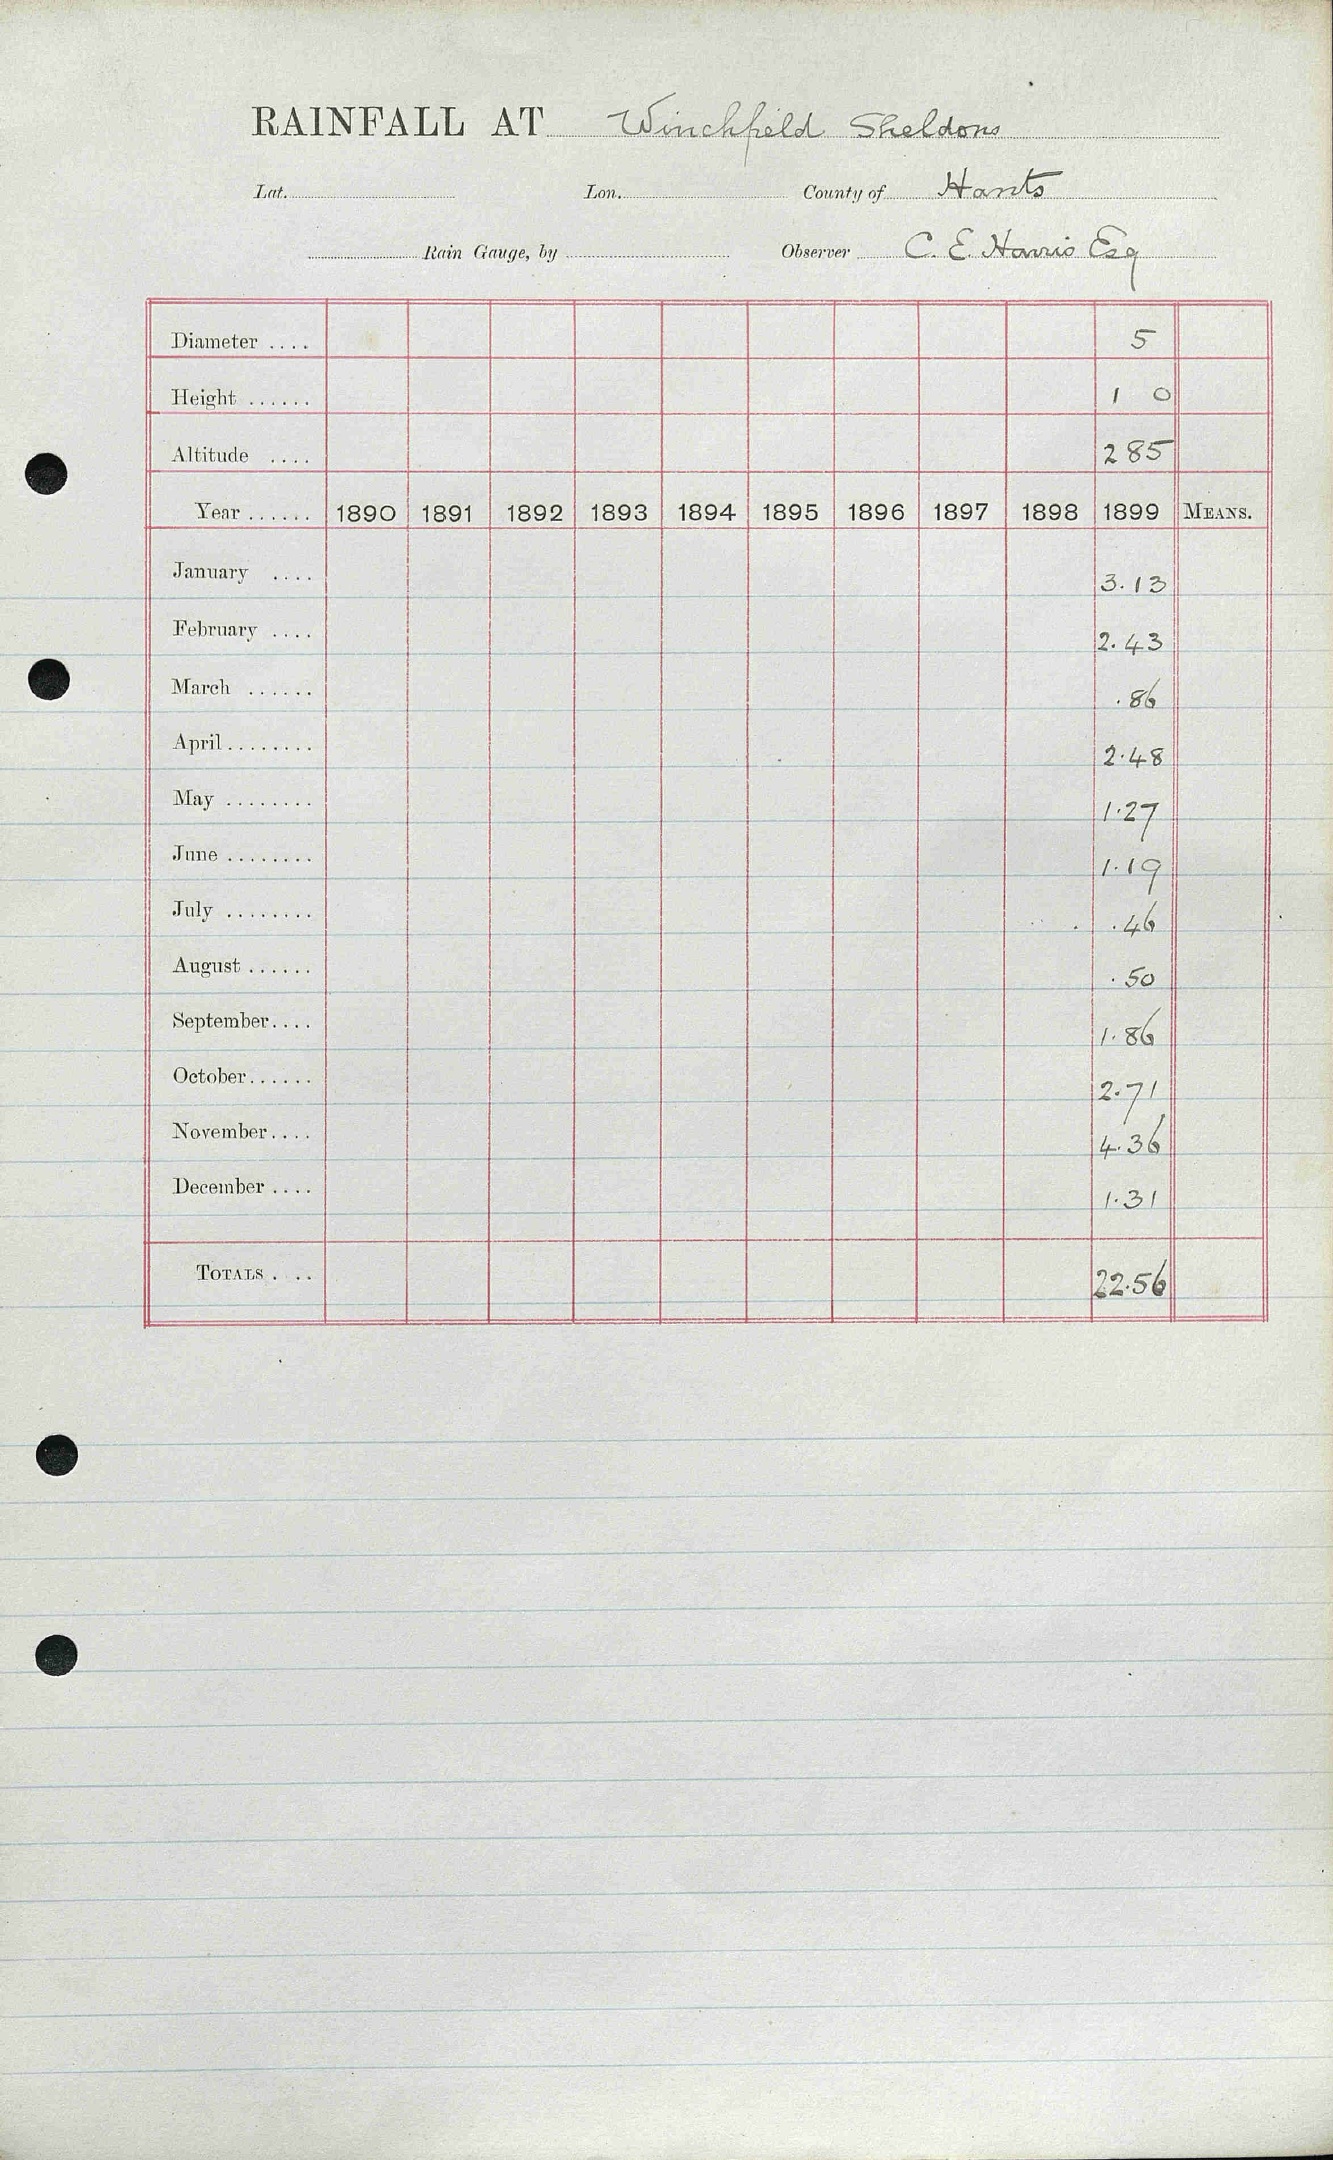 RAINFALL AT Winchfield Sheldons
Lat. Lon. County of Hants
Rain Gauge, by Observer C. E. Harris Esq
Diameter .... 5
Height ...... 1 0
Altitude .... 285
Year ...... 1890 1891 1892 1893 1894 1895 1896 1897 1898 1899 MEANS.
January .... 3.13
February .... 2.43
March ...... .86
April ........ 2.48
May ........ 1.27
June ........ 1.19
July ........ .46
August ...... .50
September.... 1.86
October...... 2.71
November.... 4.36
December .... 1.31
TOTALS . .. 22.56